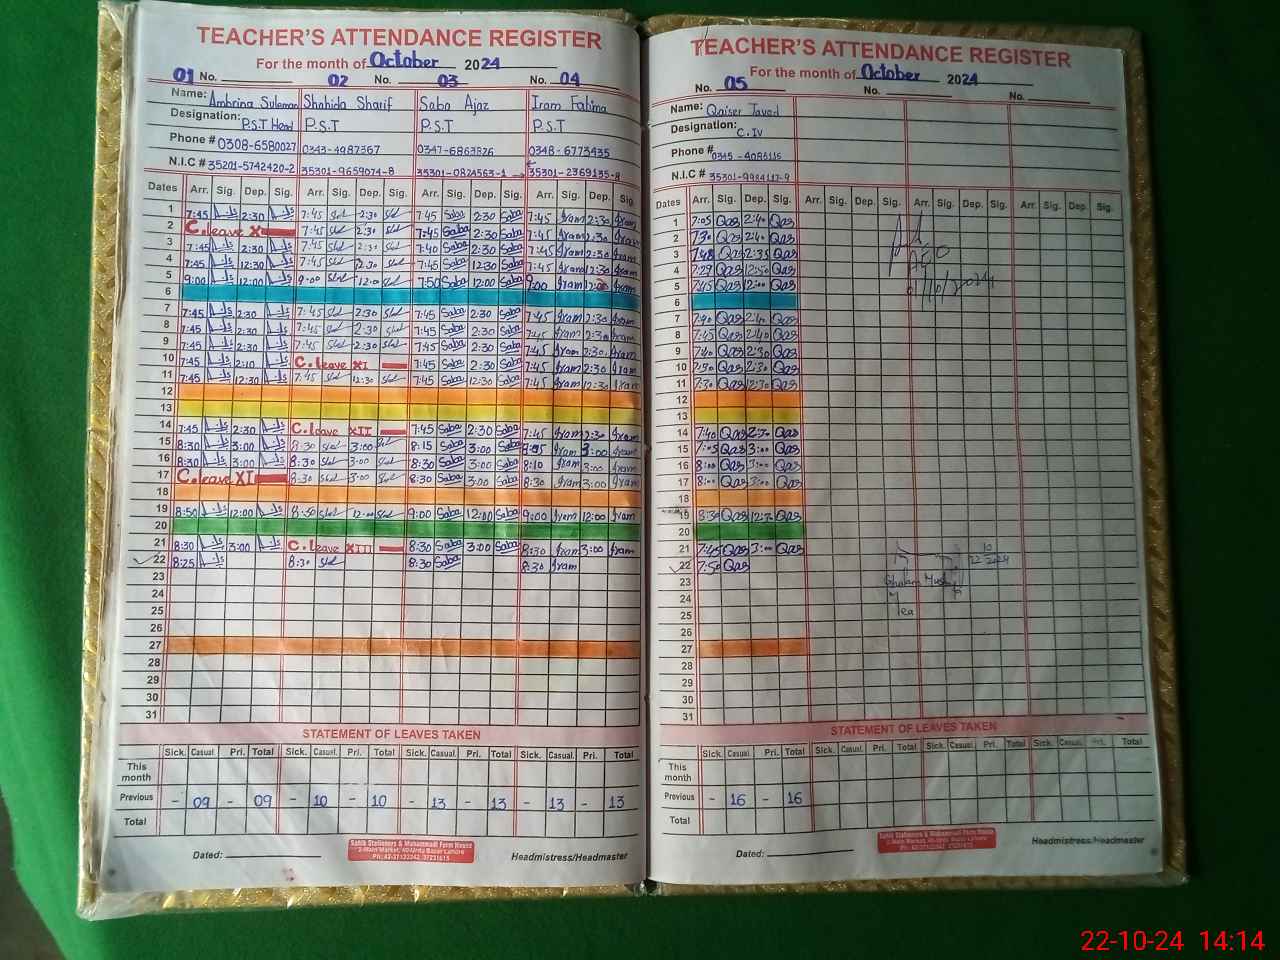 TEACHER'S ATTENDANCE REGISTER
For the month of October 2024
01 No. 02 No. 03 No. 04
Name: Ambrina Suleman Shahida Sharif Saba Ajaz Iram Fatima
Designation: P.S.T Head P.S.T P.S.T P.S.T
Phone # 0308-6580027 0343-4987367 0347-6863826 0348-6773435
N.I.C # 35201-5742420-2 35301-9659074-8 35301-0824563-1 35301-2369135-8
Dates Arr. Sig. Dep. Sig. Arr. Sig. Dep. Sig. Arr. Sig. Dep. Sig. Arr. Sig. Dep. Sig.
1 7:45 2:30 7:45 2:30 7:45 Saba 2:30 Saba 7:45 Iram 2:30 Iram
2 C.leave X 7:45 2:30 7:45 Saba 2:30 Saba 7:45 Iram 2:30 Iram
3 7:45 2:30 7:45 2:30 7:40 Saba 2:30 Saba 7:45 Iram 2:30 Iram
4 7:45 12:30 7:45 12:30 7:45 Saba 12:30 Saba 7:45 Iram 12:30 Iram
5 9:00 12:00 9:00 12:00 7:50 Saba 12:00 Saba 9:00 Iram 12:00 Iram
6
7 7:45 2:30 7:45 2:30 7:45 Saba 2:30 Saba 7:45 Iram 2:30 Iram
8 7:45 2:30 7:45 2:30 7:45 Saba 2:30 Saba 7:45 Iram 2:30 Iram
9 7:45 2:30 7:45 2:30 7:45 Saba 2:30 Saba 7:45 Iram 2:30 Iram
10 7:45 2:10 C.leave XI 7:45 Saba 2:30 Saba 7:45 Iram 2:30 Iram
11 7:45 12:30 7:45 12:30 7:45 Saba 12:30 Saba 7:45 Iram 12:30 Iram
12
13
14 7:45 2:30 C.leave XII 7:45 Saba 2:30 Saba 7:45 Iram 2:30 Iram
15 8:30 3:00 8:30 3:00 8:15 Saba 3:00 Saba Iram 3:00 Iram
16 8:30 3:00 8:30 3:00 8:30 Saba 3:00 Saba 8:10 Iram 3:00 Iram
17 C.leave XI 8:30 3:00 8:30 Saba 3:00 Saba 8:30 Iram 3:00 Iram
18
19 8:50 12:00 8:50 12:00 9:00 Saba 12:00 Saba 9:00 Iram 12:00 Iram
20
21 8:30 3:00 C.leave XIII 8:30 Saba 3:00 Saba 8:30 Iram 3:00 Iram
22 8:25 8:30 8:30 Saba 8:30 Iram
23
24
25
26
27
28
29
30
31
STATEMENT OF LEAVES TAKEN
Sick. Casual. Pri. Total Sick. Casual. Pri. Total Sick. Casual. Pri. Total Sick. Casual. Pri. Total
This month
Previous - 09 - 09 - 10 - 10 - 13 - 13 - 13 - 13
Total
Sahib Stationers & Muhammadi Form House
2-Main Market, 40-Urdu Bazar Lahore
Ph: 42-37123342, 37231615
Dated: Headmistress/Headmaster
TEACHER'S ATTENDANCE REGISTER
For the month of October 2024
No. 05 No. No.
Name: Qaiser Javed
Designation: C.IV
Phone # 0345-4086116
N.I.C # 35301-9984117-9
Dates Arr. Sig. Dep. Sig. Arr. Sig. Dep. Sig. Arr. Sig. Dep. Sig. Arr. Sig. Dep. Sig.
1 7:05 Qas 2:40 Qas
2 7:30 Qas 2:40 Qas
3 7:48 Qas 2:35 Qas
4 7:29 Qas 12:50 Qas
5 7:45 Qas 12:00 Qas
6
7 7:40 Qas 2:40 Qas
8 7:45 Qas 2:40 Qas
9 7:40 Qas 2:30 Qas
10 7:30 Qas 2:30 Qas
11 7:30 Qas 12:30 Qas
12
13
14 7:40 Qas 2:30 Qas
15 7:05 Qas 3:00 Qas
16 8:00 Qas 3:00 Qas
17 8:00 Qas 3:00 Qas
18
19 8:30 Qas 12:30 Qas
20
21 7:45 Qas 3:00 Qas
22 7:50 Qas
23
24
25
26
27
28
29
30
31
STATEMENT OF LEAVES TAKEN
Sick. Casual. Pri. Total Sick. Casual. Pri. Total Sick. Casual. Pri. Total Sick. Casual. Pri. Total
This month
Previous - 16 - 16
Total
Sahib Stationers & Muhammadi Form House
2-Main Market, 40-Urdu Bazar Lahore
Ph: 42-37123342, 37231615
Dated: Headmistress/Headmaster
22-10-24 14:14